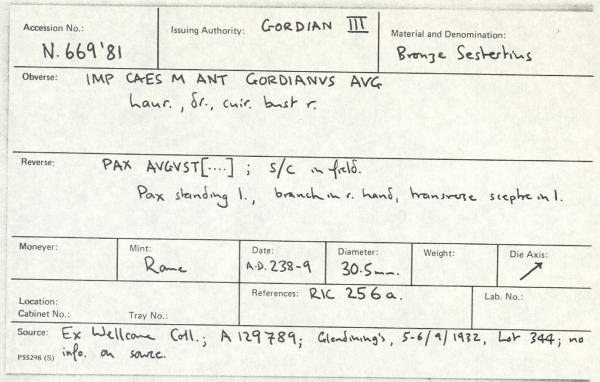 Accession No.: N.669'81
Issuing Authority: GORDIAN III
Material and Denomination: Bronze Sestertius
Obverse: IMP CAES M ANT GORDIANVS AVG
laur., dr., cuir. bust r.
Reverse: PAX AVGVST[....] ; S/C in field.
Pax standing l., branch in r. hand, transverse sceptre in l.
Moneyer:
Mint: Rome
Date: A.D. 238-9
Diameter: 30.5mm.
Weight:
Die Axis: ↗
Location:
Cabinet No.: Tray No.:
References: RIC 256a.
Lab. No.:
Source: Ex Wellcome Coll.; A 129789; Glendining's, 5-6/9/1932, Lot 344; no
P55298 (S) info. on source.